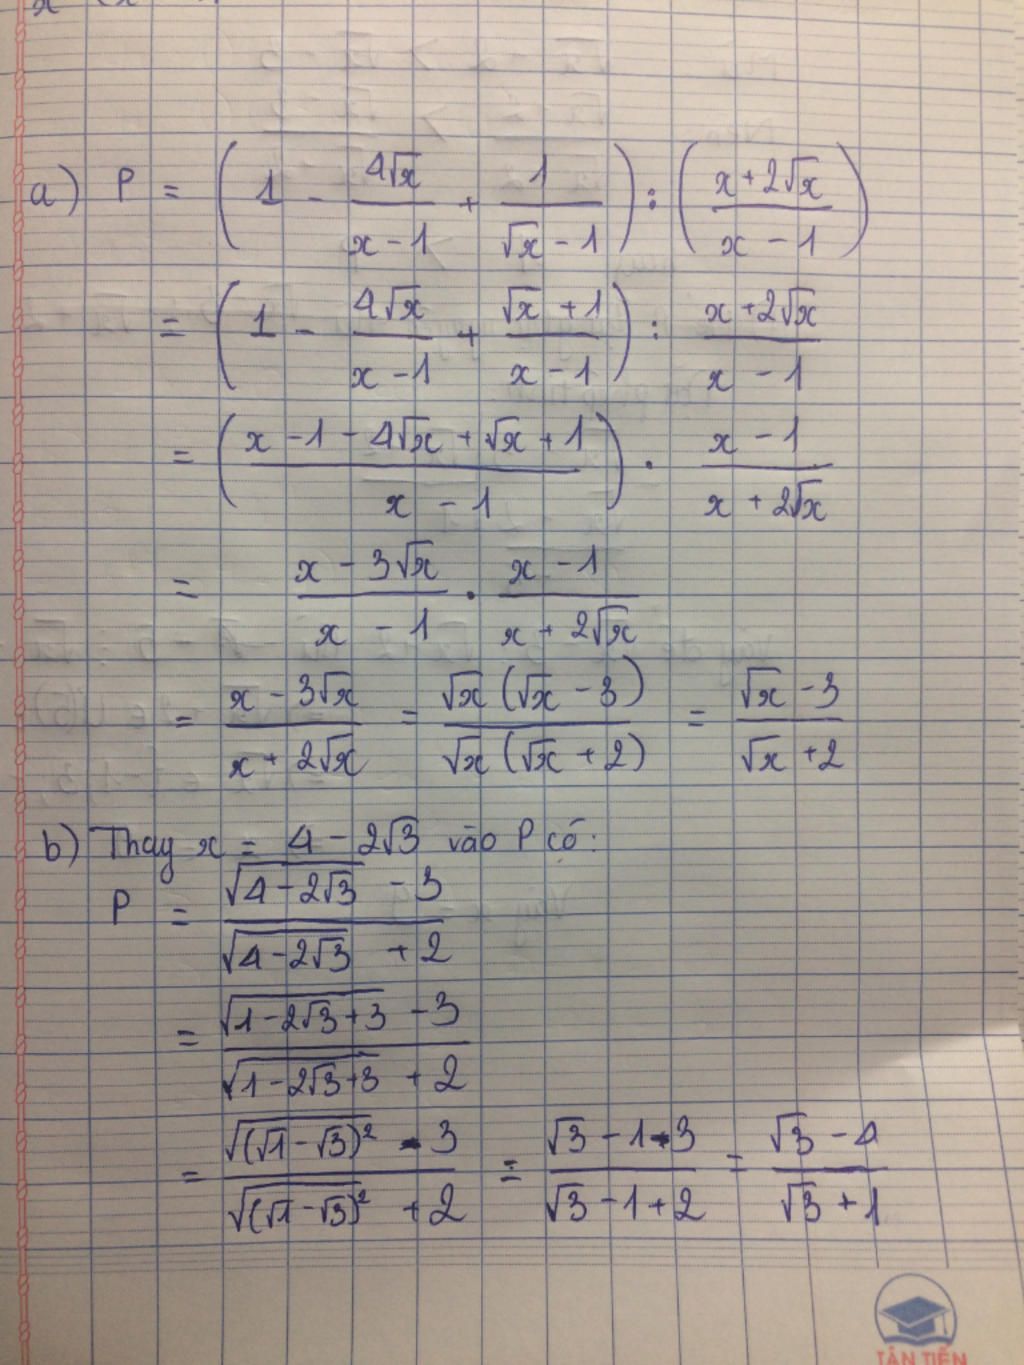 a) P = ( 1 - 4√x / x - 1 + 1 / √x - 1 ) : ( x + 2√x / x - 1 )
= ( 1 - 4√x / x - 1 + √x + 1 / x - 1 ) : x + 2√x / x - 1
= ( x - 1 - 4√x + √x + 1 / x - 1 ) . x - 1 / x + 2√x
= x - 3√x / x - 1 . x - 1 / x + 2√x
= x - 3√x / x + 2√x = √x (√x - 3) / √x (√x + 2) = √x - 3 / √x + 2
b) Thay x = 4 - 2√3 vào P có:
P = √4 - 2√3 - 3 / √4 - 2√3 + 2
= √1 - 2√3 + 3 - 3 / √1 - 2√3 + 3 + 2
= √(√1 - √3)² - 3 / √(√1 - √3)² + 2 = √3 - 1 - 3 / √3 - 1 + 2 = √3 - 4 / √3 + 1
TÂN TIẾN